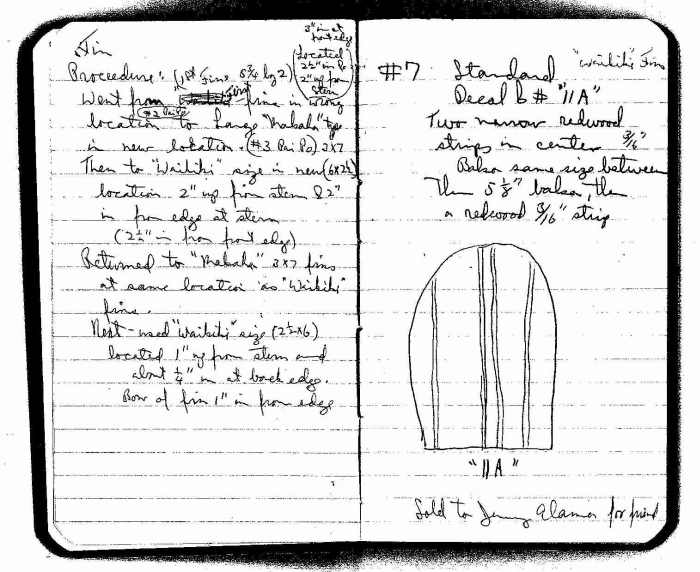 Fin
3" in at
front edge
Located
2½" in
2" up from
stern
Proceedure: (1st Fins 5¾ by 2)
Went from fins in wrong
(#2 Pai Po)
location to large "Makaha" type
in new location. (#3 Pai Po) 3x7
Then to "Waikiki" size in new (6x2½)
location 2" up from stern & 2"
in from edge at stern
(2½" in from front edge)
Returned to "Makaha" 3x7 fins
at same location as "Waikiki"
fins.
Next - used "Waikiki" size (2½x6)
located 1" up from stern and
about ¼" in at back edge.
Bow of fin 1" in from edge
"Waikiki" Fins
#7 Standard
Decal b # "11A"
Two narrow redwood
strips in center 3/16"
Balsa same size between
Then 5⅛" balsa, then
a redwood 3/16" strip
"11A"
Sold to for friend